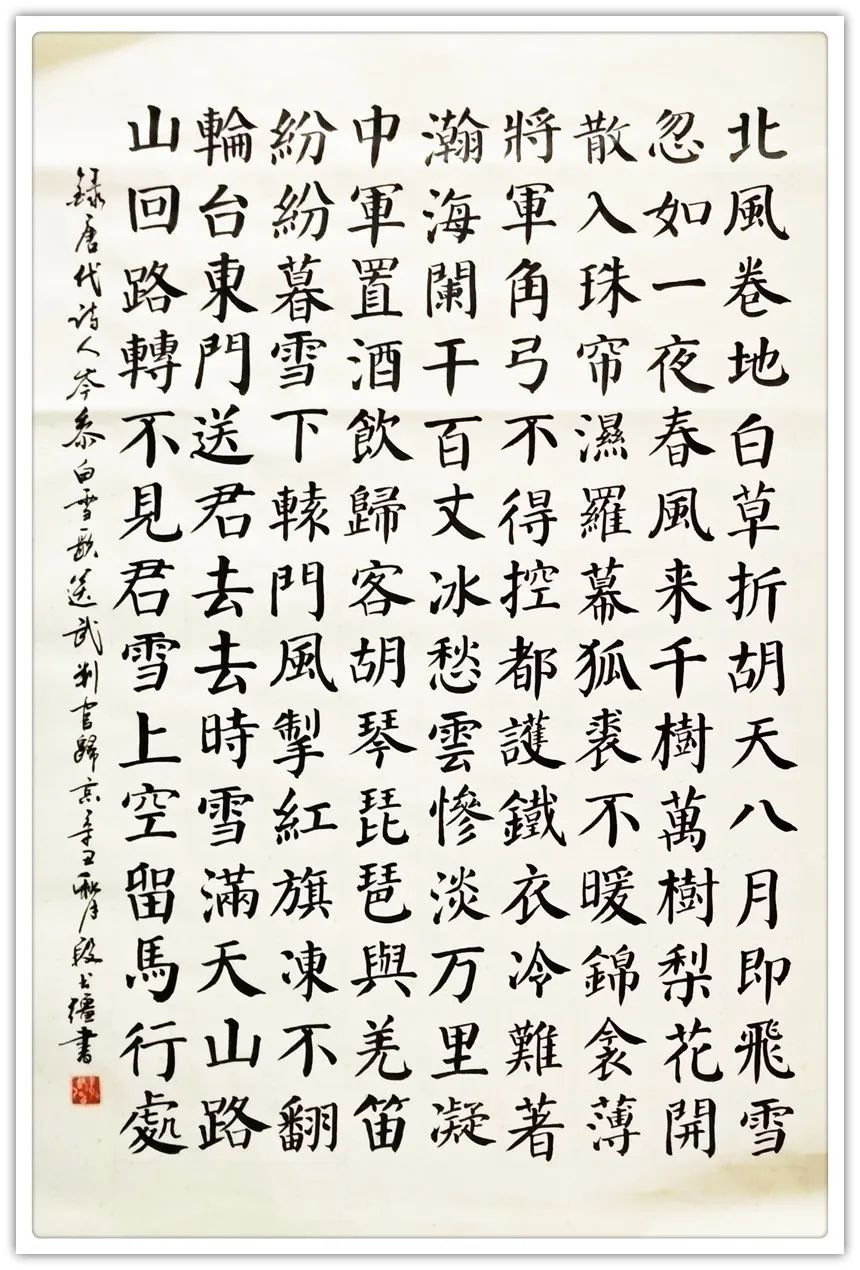 北風卷地白草折胡天八月即飛雪
忽如一夜春風来千樹萬樹梨花開
散入珠帘濕羅幕狐裘不暖錦衾薄
將軍角弓不得控都護鐵衣冷難著
瀚海闌干百丈冰愁雲慘淡万里凝
中軍置酒飲歸客胡琴琵琶與羌笛
紛紛暮雪下轅門風掣紅旗凍不翻
輪台東門送君去去時雪滿天山路
山回路轉不見君雪上空留馬行處
録唐代詩人岑參白雪歌送武判官歸京辛丑秋月段書